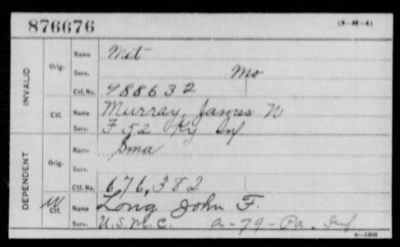 876676 (3-M-4)
INVALID
Orig. Name
Serv. Mo
Ctf. No. 488632
Ctf. Name Murray, James N
Serv. F 52 Ky Inf
DEPENDENT
Orig. Name Sma
Serv.
Ctf. No. 676,382
Ctf. Name Long John F.
Serv. U.S.M.C. A-79-Pa. Inf